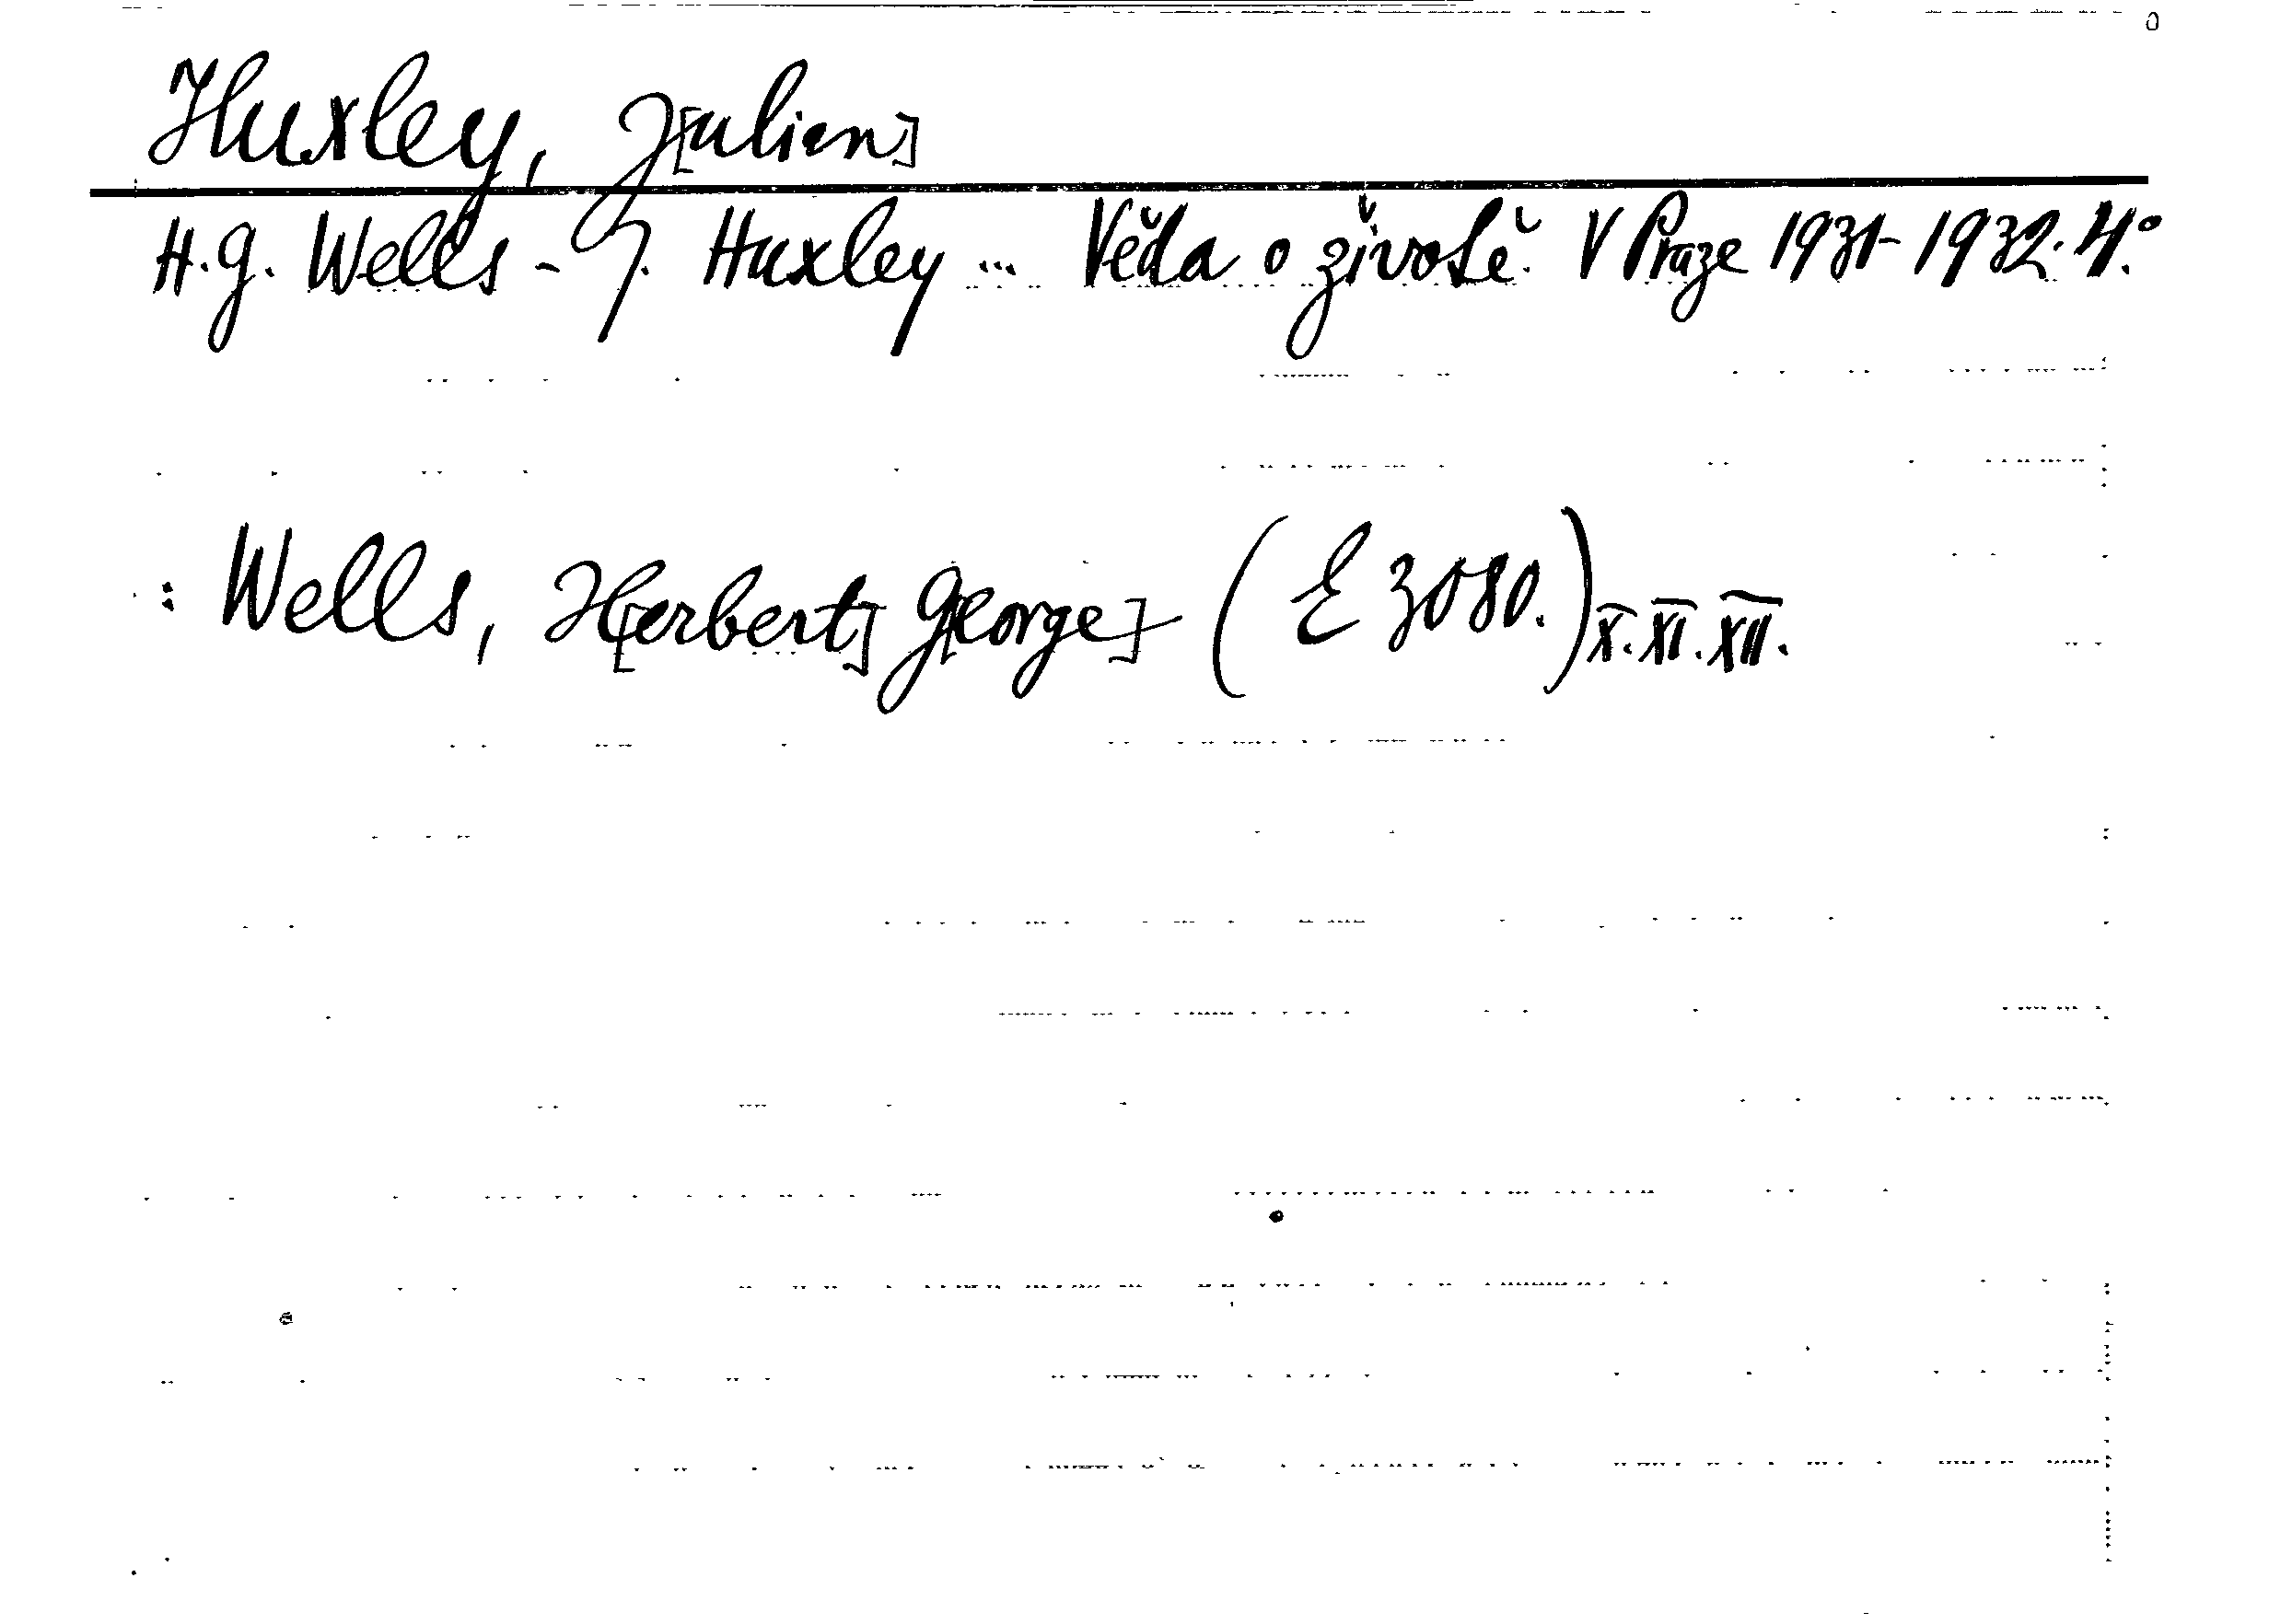 Huxley, J[ulian]
H. G. Wells - J. Huxley ... Věda o životě. V Praze 1931-1932. 4.°
: Wells, H[erbert] G[eorge] (E 3080.) X. XI. XII.